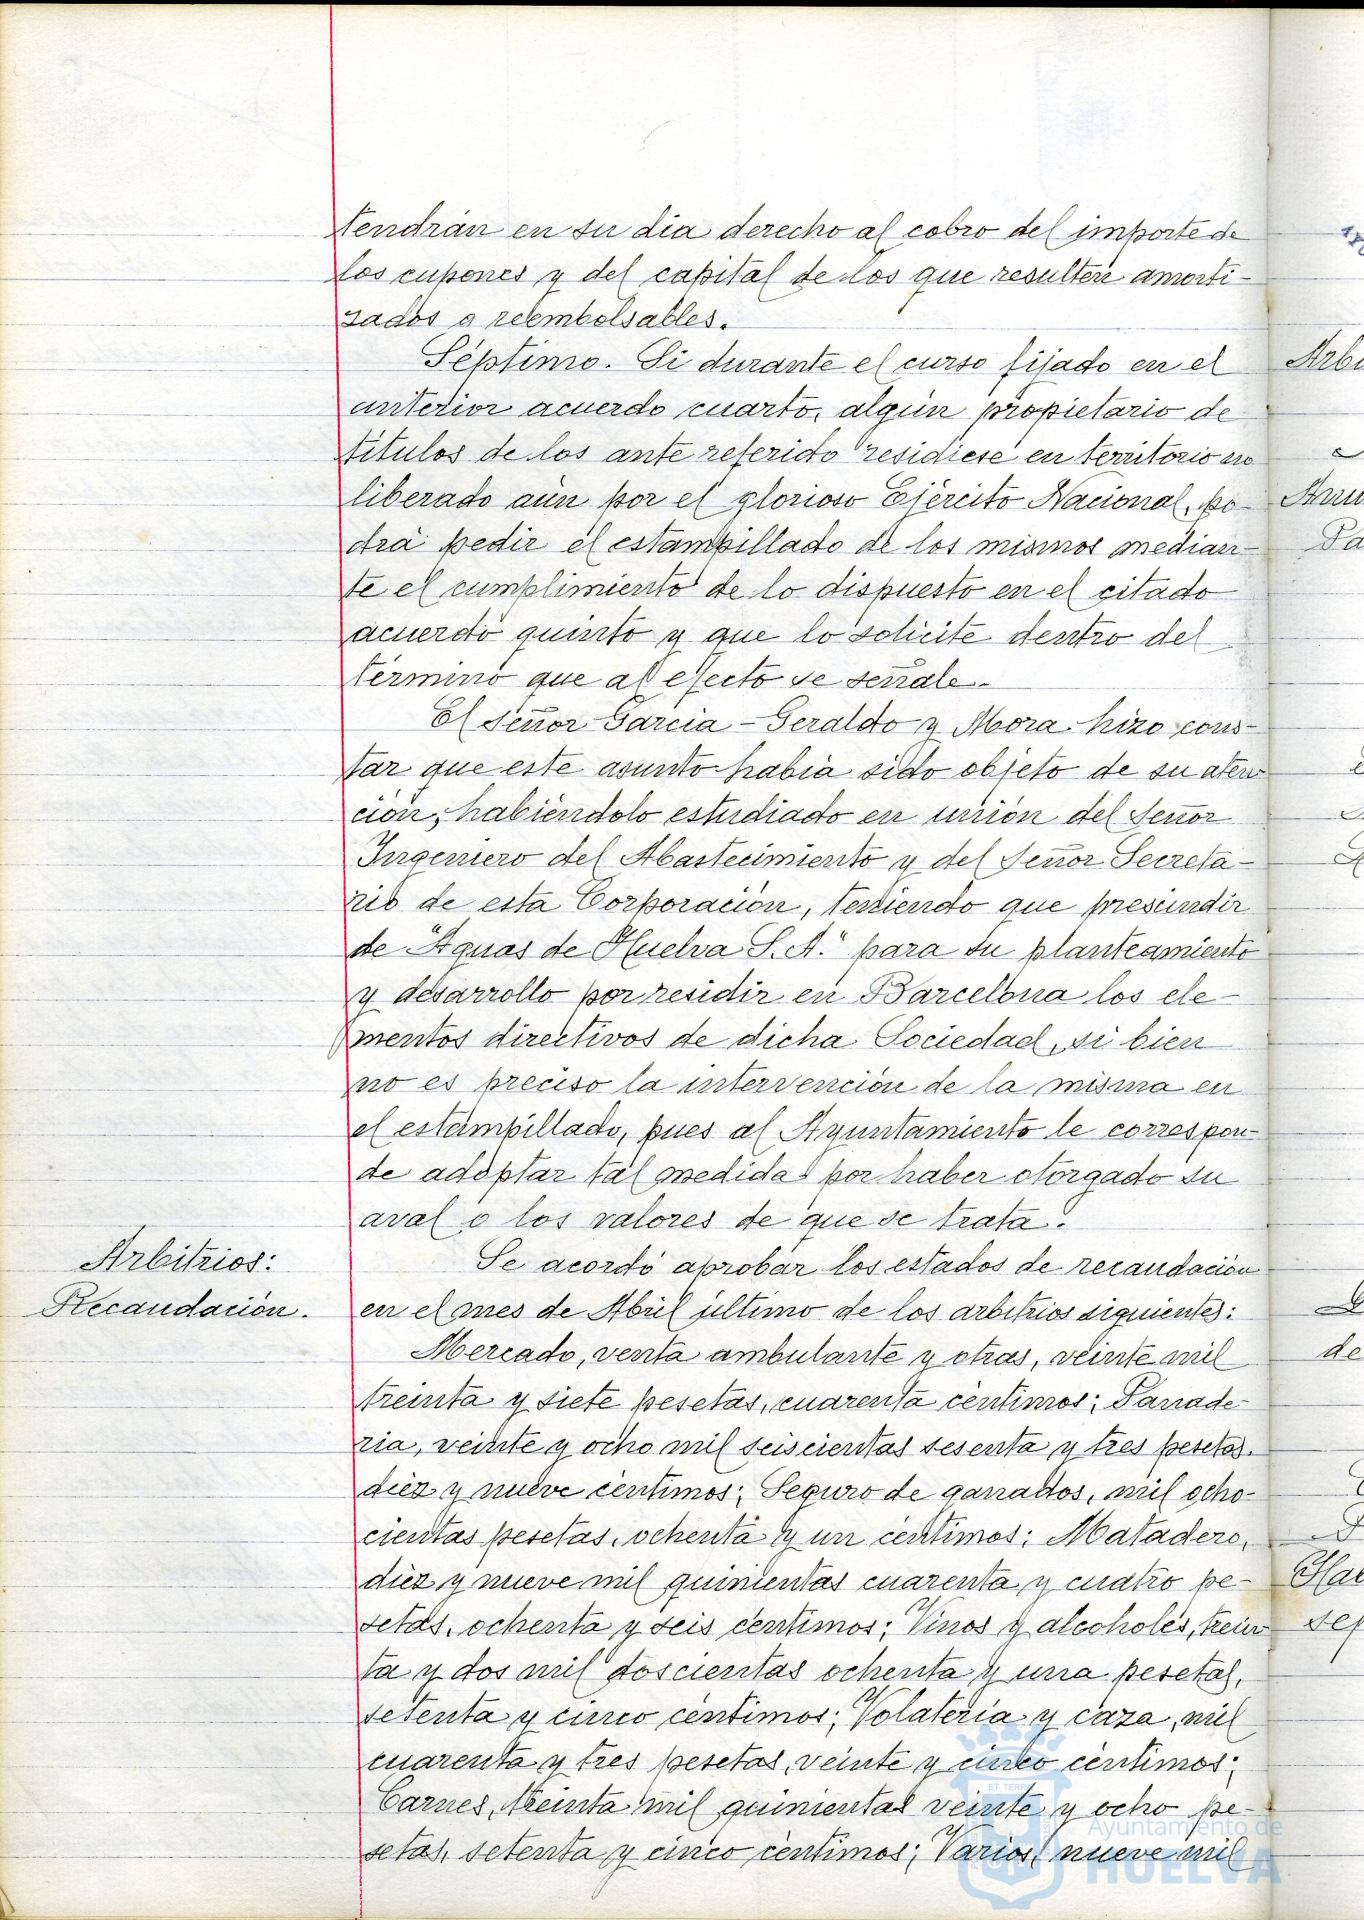 tendrán en su dia derecho al cobro del importe de
los cupones y del capital de los que resulten amorti-
zados o reembolsables.
Séptimo. Si durante el curso fijado en el
anterior acuerdo cuarto, algún propietario de
títulos de los ante referido residiese en territorio no
liberado aún por el glorioso Ejército Nacional, po-
drá pedir el estampillado de los mismos median-
te el cumplimiento de lo dispuesto en el citado
acuerdo quinto y que lo solicite dentro del
término que al efecto se señale.
El señor Garcia-Geraldo y Mora hizo cons-
tar que este asunto había sido objeto de su aten-
ción, habiéndolo estudiado en unión del señor
Ingeniero del Abastecimiento y del señor Secreta-
rio de esta Corporación, teniendo que prescindir
de "Aguas de Huelva S.A." para su planteamiento
y desarrollo por residir en Barcelona los ele-
mentos directivos de dicha Sociedad, si bien
no es preciso la intervención de la misma en
el estampillado, pues al Ayuntamiento le correspon-
de adoptar tal medida por haber otorgado su
aval o los valores de que se trata.
Arbitrios:
Recaudación.
Se acordó aprobar los estados de recaudación
en el mes de Abril último de los arbitrios siguientes:
Mercado, venta ambulante y otras, veinte mil
treinta y siete pesetas, cuarenta céntimos; Panade-
ria, veinte y ocho mil seiscientas sesenta y tres pesetas,
diez y nueve céntimos; Seguro de ganados, mil ocho-
cientas pesetas, ochenta y un céntimos; Matadero,
diez y nueve mil quinientas cuarenta y cuatro pe-
setas, ochenta y seis céntimos; Vinos y alcoholes, trein-
ta y dos mil doscientas ochenta y una pesetas,
setenta y cinco céntimos; Volatería y caza, mil
cuarenta y tres pesetas, veinte y cinco céntimos;
Carnes, treinta mil quinientas veinte y ocho pe-
setas, setenta y cinco céntimos; Varios, nueve mil
Ayuntamiento de
HUELVA